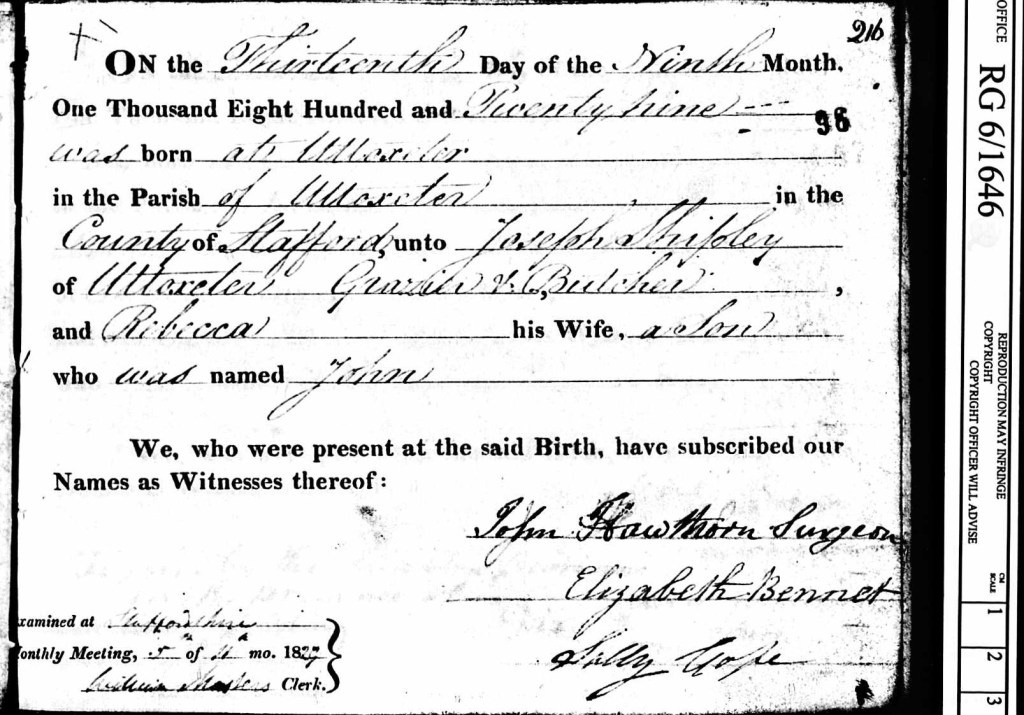 216
ON the Thirteenth Day of the Ninth Month,
One Thousand Eight Hundred and Twenty nine
96
was born at Uttoxeter
in the Parish of Uttoxeter in the
County of Stafford, unto Joseph Shipley
of Uttoxeter Grazier & Butcher,
and Rebecca his Wife, a Son
who was named John
We, who were present at the said Birth, have subscribed our
Names as Witnesses thereof:
John Hawthorn Surgeon
Elizabeth Bennet
Sally Cope
xamined at Staffordshire
onthly Meeting, 5th of mo. 18
William Masters Clerk.
OFFICE RG 6/1646
REPRODUCTION MAY INFRINGE
COPYRIGHT
COPYRIGHT OFFICER WILL ADVISE
CM
SCALE 1 2 3